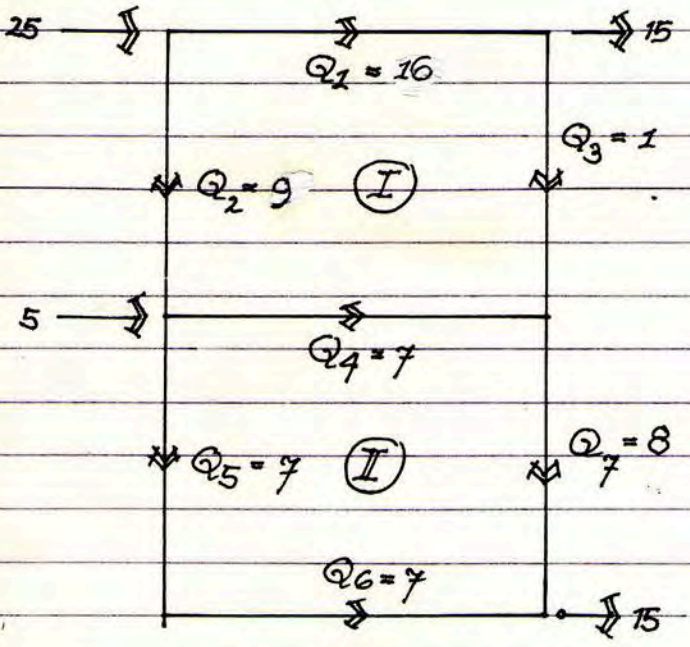 25
15
Q1 = 16
Q3 = 1
Q2 = 9
I
5
Q4 = 7
Q7 = 8
Q5 = 7
II
Q6 = 7
15